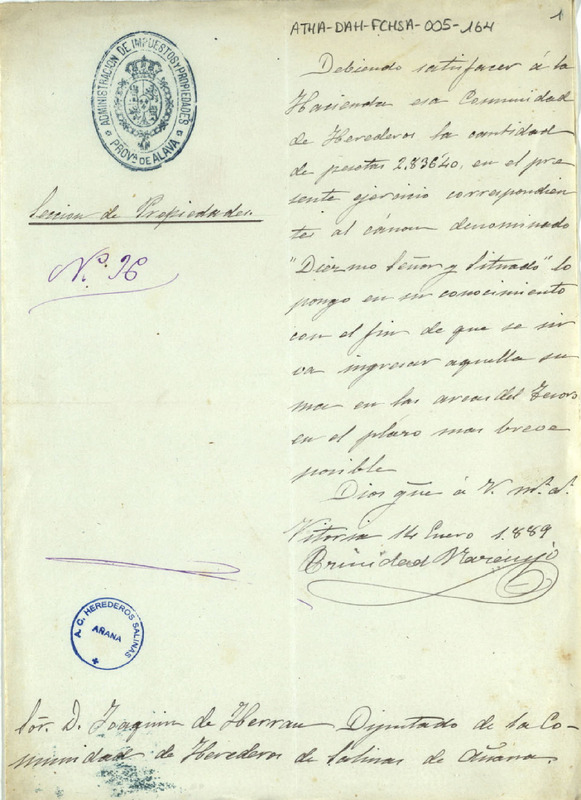 ATHA-DAH-FCHSA-005-164
1
ADMINISTRACION DE IMPUESTOS Y PROPIEDADES
PROVA DE ALAVA
Seccion de Propiedades.
Nº. 96
Debiendo satisfacer á la
Hacienda esa Comunidad
de Herederos la cantidad
de pesetas 2,836'40, en el pre
sente ejercicio correspondien
tes al cánon denominado
"Diezmo Señor y Situado" lo
pongo en su conocimiento
con el fin de que se sir
va ingresar aquella su
ma en las arcas del Tesoro
en el plazo mas breve
posible
Dios gūe á V. m.s a.s
Vitoria 14 Enero 1.889
Trinidad
A. C. HEREDEROS SALINAS
AÑANA
Sōr. D. Joaquin de Herran Diputado de la Co-
munidad de Herederos de Salinas de Añana.